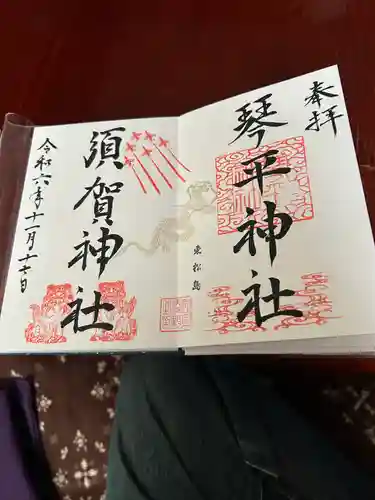 奉拝
琴平神社
東松島
須賀神社
令和六年十一月十六日